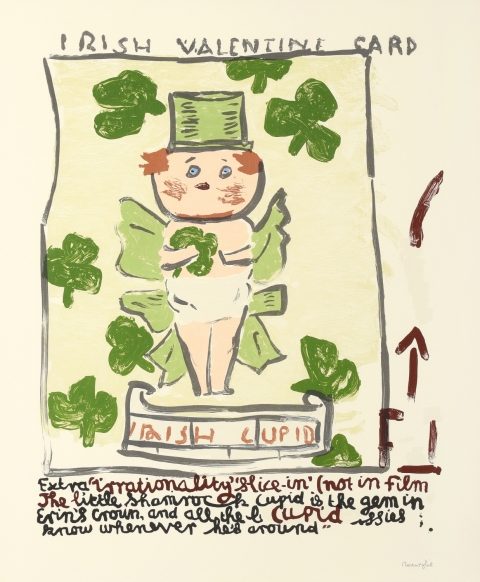 IRISH VALENTINE CARD
IRISH CUPID
Extra "irrationality" slice-in" (not in film
The little Shamroc k Cupid is the gem in
Erin's Crown, and all the l Cupid assies
know whenever he's around"